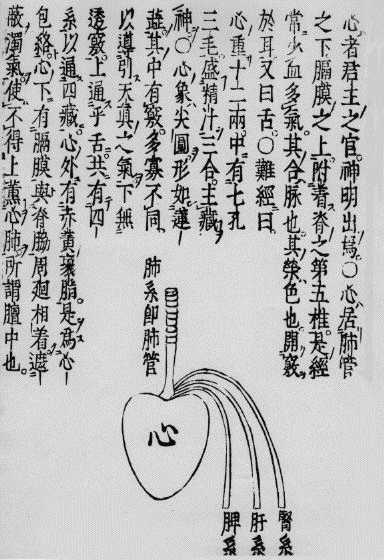 心者君主之官神明出焉〇心居肺管
之下膈膜之上附着脊之第五椎是經
常少血多氣其合脉也其榮色也開竅
於耳又曰舌〇難經曰
心重十二兩中有七孔
三毛盛精汁三合主藏
神〇心象尖圓形如蓮
蕋其中有竅多寡不同
以導引天真之氣下無
透竅上通乎舌共有四
系以通四藏心外有赤黄裹脂是爲心
包絡心下有膈膜與脊脇周廻相着遮
蔽濁氣使不得上薫心肺所謂膻中也
肺系即肺管
心
腎系
肝系
脾系